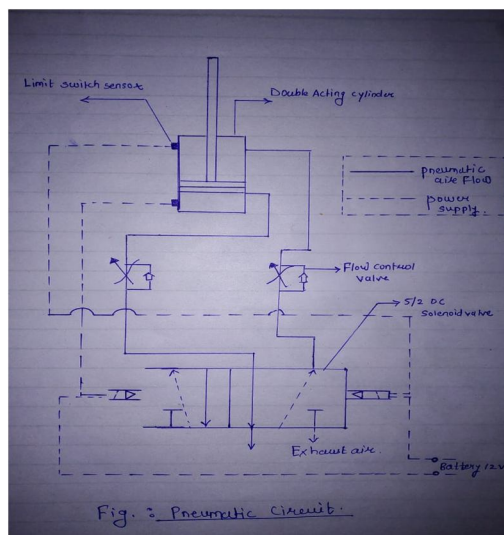 Limit switch sensor
Double Acting cylinder
pneumatic
air Flow
power
supply
Flow control
valve
5/2 DC
Solenoid valve
Exhaust air.
Battery 12V
Fig. : Pneumatic Circuit.